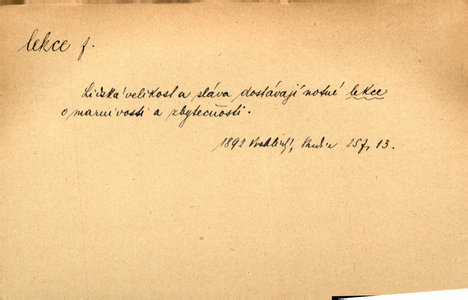 lekce f.
Lidská velikost a sláva dostávají notné lekce
o marnivosti a zbytečnosti.
1892 Vrchlický, 13.